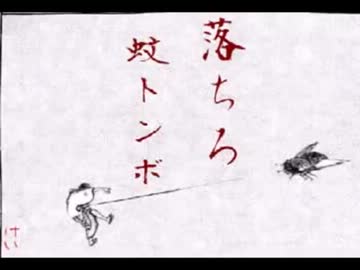 落ちろ
蚊トンボ
けい